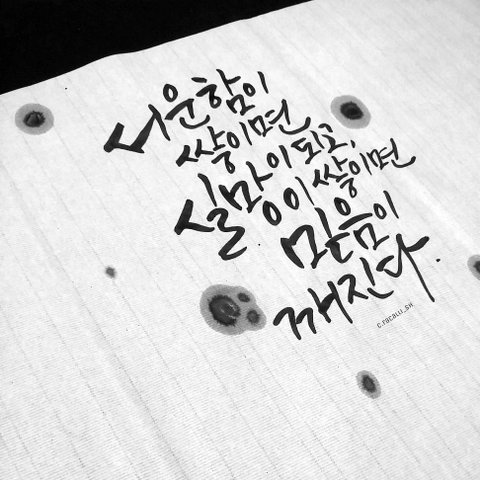 서운함이
쌓이면
실망이 되고,
실망이 쌓이면
믿음이
깨진다.
C.FACALLI_SH